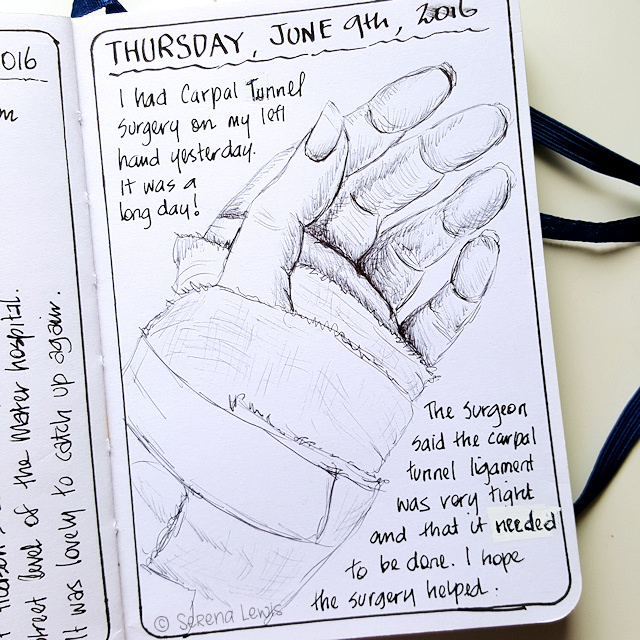 016
m
street level of the Mater hospital.
It was lovely to catch up again.
THURSDAY, JUNE 9th, 2016
I had Carpal Tunnel
Surgery on my left
hand yesterday.
It was a
long day!
The Surgeon
said the carpal
tunnel ligament
was very tight
and that it needed
to be done. I hope
the surgery helped.
© Serena Lewis